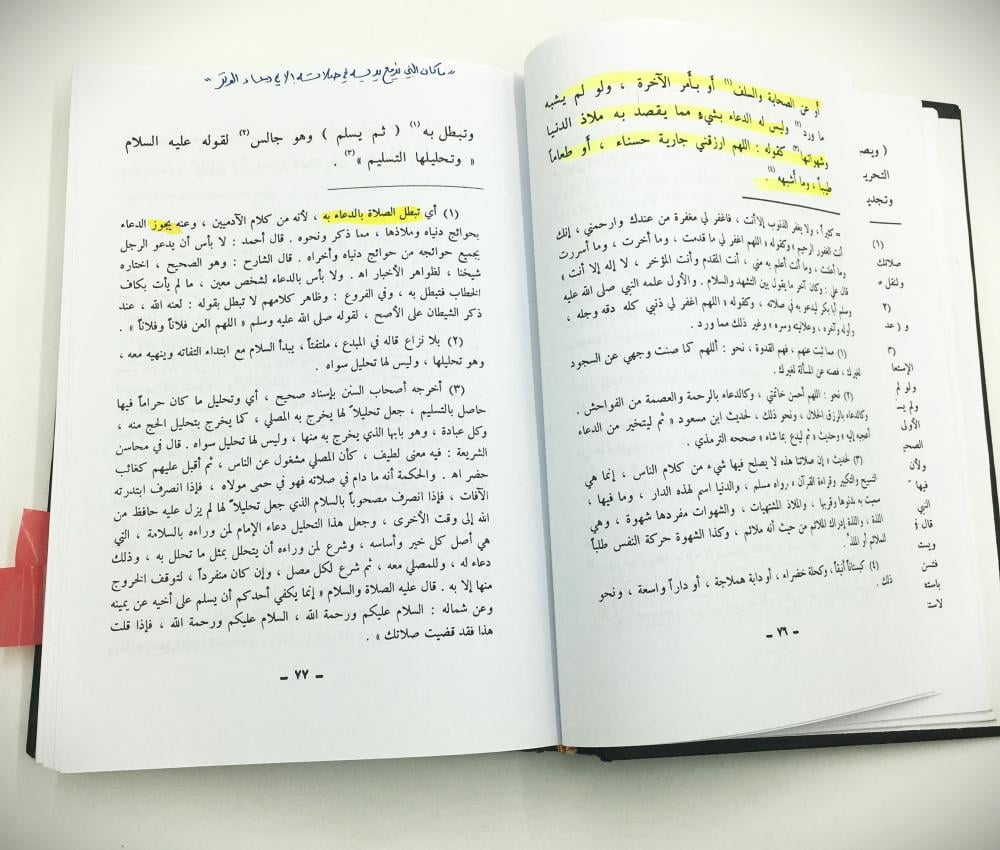 أو عن الصحابة والسلف (١) أو بأمر الآخرة ، ولو لم يشبه
ما ورد (٢) وليس له الدعاء بشيء مما يقصد به ملاذ الدنيا
وشهواتها (٣) كقوله : اللهم ارزقني جارية حسناء ، أو طعاماً
طيباً ، وما أشبهه (٤) .
= كثيراً ، ولا يغفر الذنوب إلا أنت ، فاغفر لي مغفرة من عندك وارحمني ، إنك
أنت الغفور الرحيم » وكقوله « اللهم اغفر لي ما قدمت ، وما أخرت ، وما أسررت
وما أعلنت ، وما أنت أعلم به مني ، أنت المقدم وأنت المؤخر ، لا إله إلا أنت »
قال علي : وكان آخر ما يقول بين التشهد والسلام . والأول علمه النبي صلى الله عليه
وسلم أبا بكر ليدعو به في صلاته ، وكقوله « اللهم اغفر لي ذنبي كله دقه وجله ،
وأوله وآخره ، وعلانيته وسره » وغير ذلك مما ورد .
(١) مما ثبت عنهم ، فهم القدوة ، نحو : أللهم كما صنت وجهي عن السجود
لغيرك ، فصنه عن المسألة لغيرك .
(٢) نحو : اللهم أحسن خاتمتي ، وكالدعاء بالرحمة والعصمة من الفواحش .
وكالدعاء بالرزق الحلال ، ونحو ذلك ، لحديث ابن مسعود « ثم ليتخير من الدعاء
أعجبه إليه » وحديث « ثم ليدع بما شاء » صححه الترمذي .
(٣) لحديث « إن صلاتنا هذه لا يصلح فيها شيء من كلام الناس ، إنما هي
التسبيح والتكبير وقراءة القرآن » رواه مسلم ، والدنيا اسم لهذه الدار ، وما فيها ،
سميت به لدنوها وقربها ، والملاذ المشتهيات ، والشهوات مفردها شهوة ، وهي
اللذة ، واللذة إدراك الملائم من حيث أنه ملائم ، وكذا الشهوة حركة النفس طلباً
للملائم أو الملذ .
(٤) كبستاناً أنيقاً ، وكحلة خضراء ، أو دابة هملاجة ، أو داراً واسعة ، ونحو
ذلك .
– ٧٦ –
« ما كان النبي يرفع يديه في صلاته إلا في دعاء الوتر »
وتبطل به (١) ( ثم يسلم ) وهو جالس (٢) لقوله عليه السلام
« وتحليلها التسليم » (٣) .
(١) أي تبطل الصلاة بالدعاء به ، لأنه من كلام الآدميين ، وعنه يجوز الدعاء
بحوائج دنياه وملاذها ، مما ذكر ونحوه . قال أحمد : لا بأس أن يدعو الرجل
بجميع حوائجه من حوائج دنياه وأخراه . قال الشارح : وهو الصحيح ، اختاره
شيخنا ، لظواهر الأخبار اه . ولا بأس بالدعاء لشخص معين ، ما لم يأت بكاف
الخطاب فتبطل به ، وفي الفروع : وظاهر كلامهم لا تبطل بقوله : لعنه الله ، عند
ذكر الشيطان على الأصح ، لقوله صلى الله عليه وسلم « اللهم العن فلاناً وفلاناً » .
(٢) بلا نزاع قاله في المبدع ، ملتفتاً ، يبدأ السلام مع ابتداء التفاته وينهيه معه ،
وهو تحليلها ، وليس لها تحليل سواه .
(٣) أخرجه أصحاب السنن بإسناد صحيح ، أي وتحليل ما كان حراماً فيها
حاصل بالتسليم ، جعل تحليلاً لها يخرج به المصلي ، كما يخرج بتحليل الحج منه ،
وكل عبادة ، وهو بابها الذي يخرج به منها ، وليس لها تحليل سواه . قال في محاسن
الشريعة : فيه معنى لطيف ، كأن المصلي مشغول عن الناس ، ثم أقبل عليهم كغائب
حضر اه . والحكمة أنه ما دام في صلاته فهو في حمى مولاه ، فإذا انصرف ابتدرته
الآفات ، فإذا انصرف مصحوباً بالسلام الذي جعل تحليلاً لها لم يزل عليه حافظ من
الله إلى وقت الأخرى ، وجعل هذا التحليل دعاء الإمام لمن وراءه بالسلامة ، التي
هي أصل كل خير وأساسه ، وشرع لمن وراءه أن يتحلل بمثل ما تحلل به ، وذلك
دعاء له ، وللمصلي معه ، ثم شرع لكل مصل ، وإن كان منفرداً ، لتوقف الخروج
منها إلا به . قال عليه الصلاة والسلام « إنما يكفي أحدكم أن يسلم على أخيه عن يمينه
وعن شماله : السلام عليكم ورحمة الله ، السلام عليكم ورحمة الله ، فإذا قلت
هذا فقد قضيت صلاتك » .
– ٧٧ –